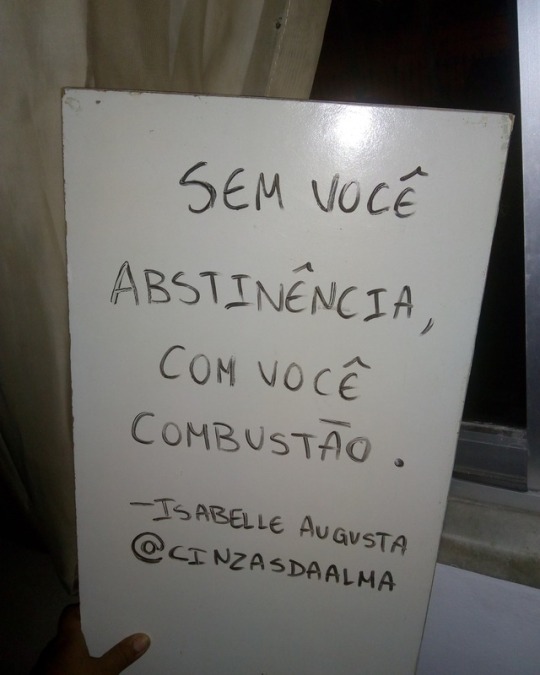 SEM VOCÊ
ABSTINÊNCIA,
COM VOCÊ
COMBUSTÃO.
—ISABELLE AUGUSTA
@CINZASDAALMA